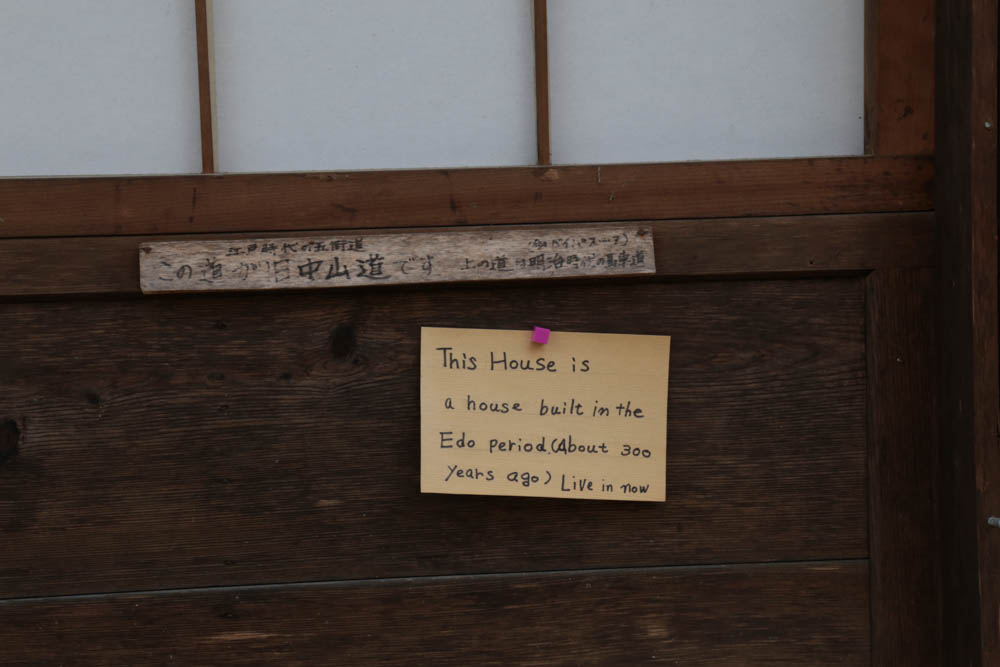 江戸時代の五街道
この道が旧中山道です 上の道は明治時代の馬車道
This House is
a house built in the
Edo period.(About 300
years ago) Live in now